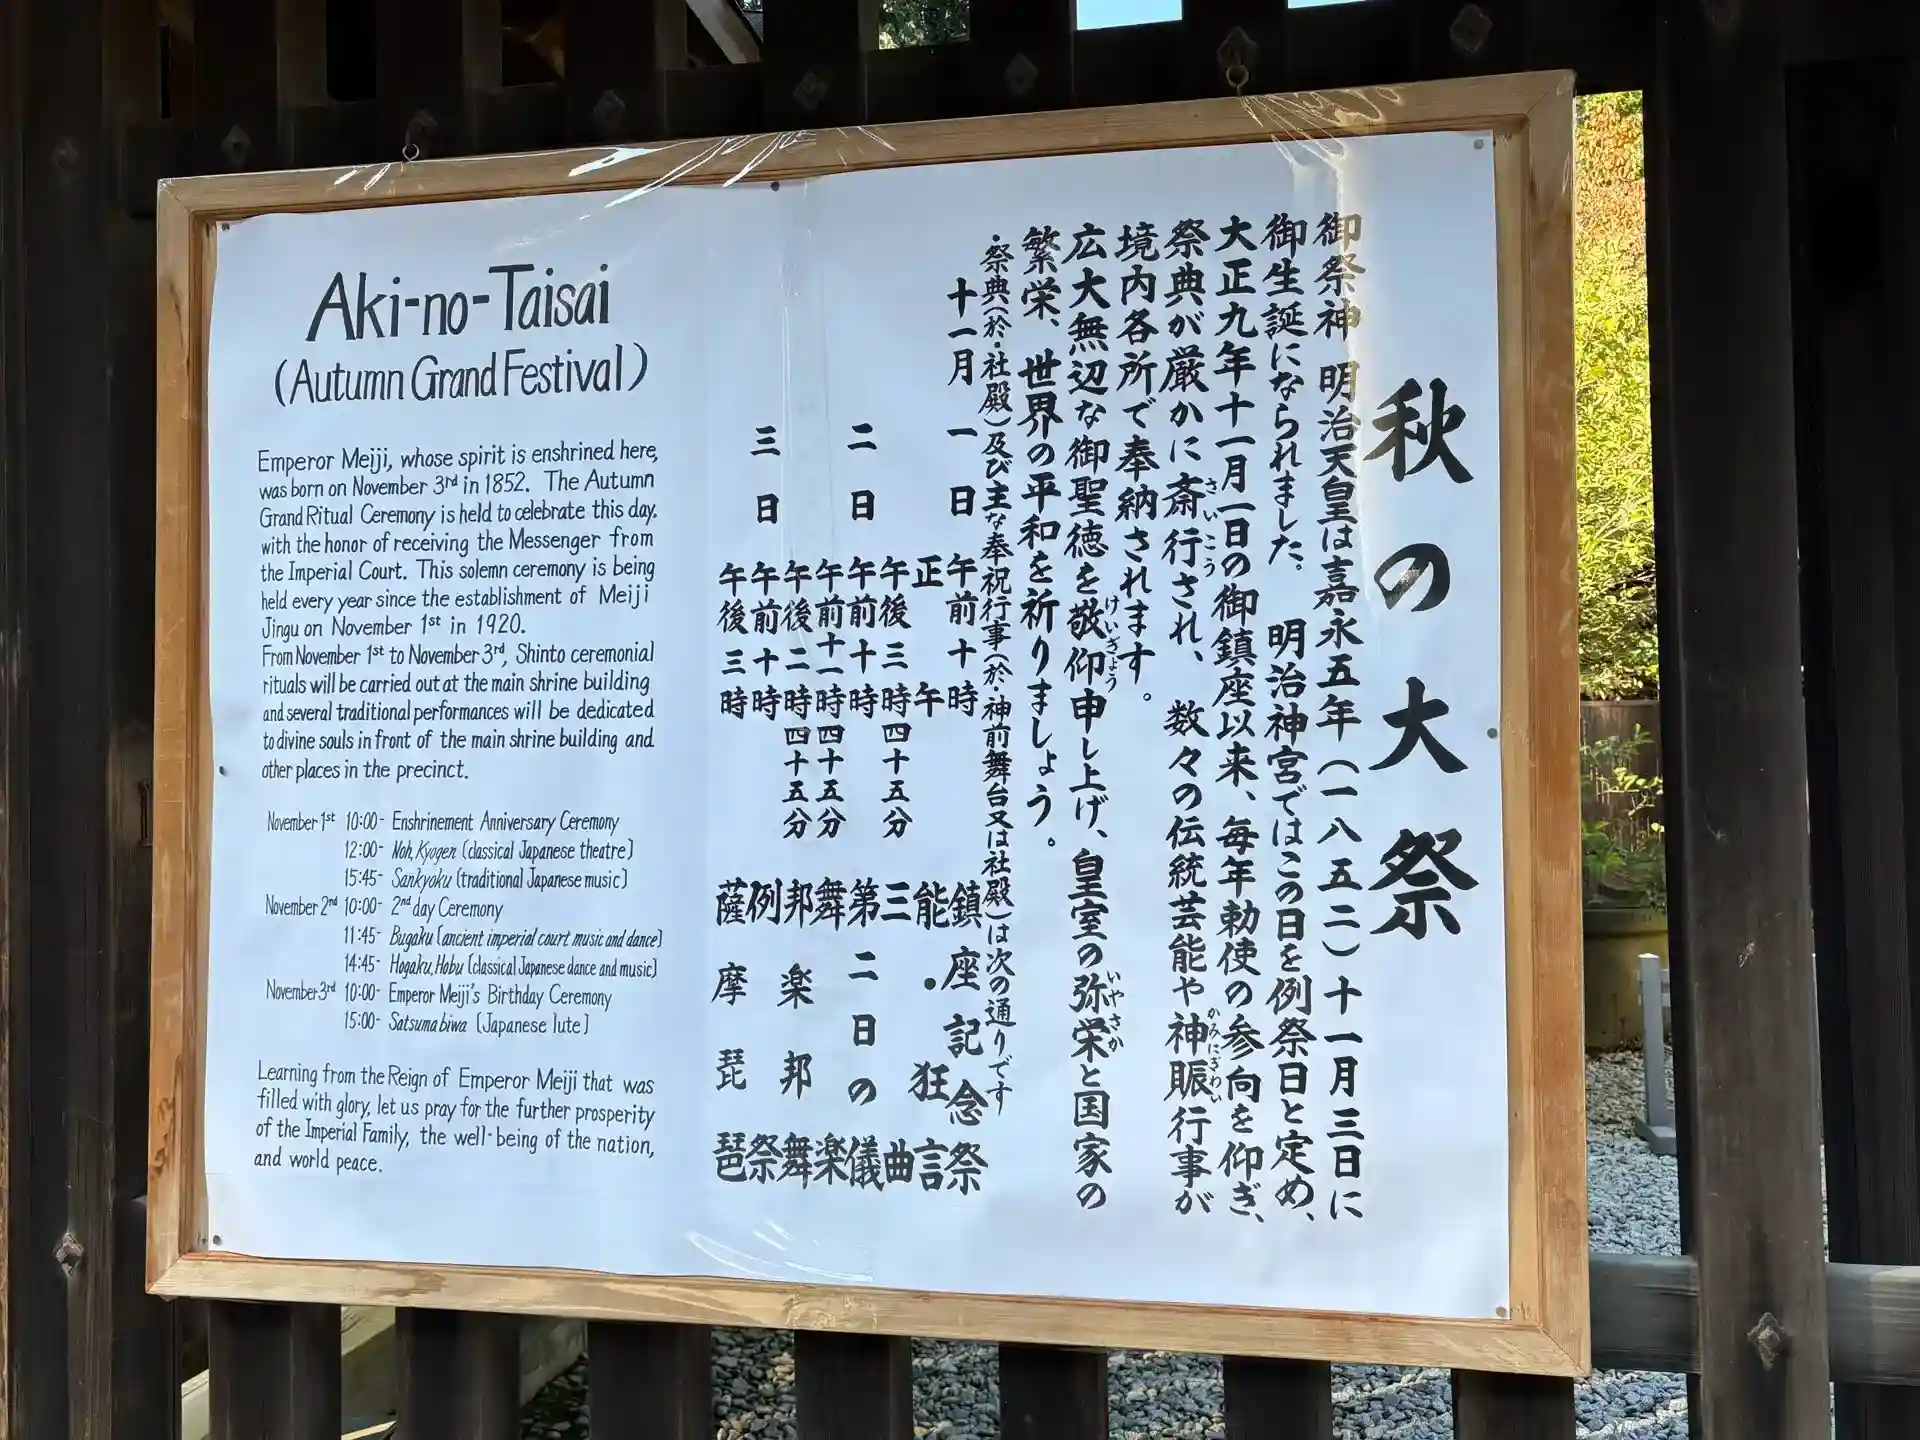 Aki-no-Taisai
(Autumn Grand Festival)
Emperor Meiji, whose spirit is enshrined here,
was born on November 3rd in 1852. The Autumn
Grand Ritual Ceremony is held to celebrate this day,
with the honor of receiving the Messenger from
the Imperial Court. This solemn ceremony is being
held every year since the establishment of Meiji
Jingu on November 1st in 1920.
From November 1st to November 3rd, Shinto ceremonial
rituals will be carried out at the main shrine building
and several traditional performances will be dedicated
to divine souls in front of the main shrine building and
other places in the precinct.
November 1st 10:00- Enshrinement Anniversary Ceremony
12:00- Noh, Kyogen (classical Japanese theatre)
15:45- Sankyoku (traditional Japanese music)
November 2nd 10:00- 2nd day Ceremony
11:45- Bugaku (ancient imperial court music and dance)
14:45- Hogaku, Hobu (classical Japanese dance and music)
November 3rd 10:00- Emperor Meiji's Birthday Ceremony
15:00- Satsuma biwa (Japanese lute)
Learning from the Reign of Emperor Meiji that was
filled with glory, let us pray for the further prosperity
of the Imperial Family, the well-being of the nation,
and world peace.
秋の大祭
御祭神 明治天皇は嘉永五年（一八五二）十一月三日に
御生誕になられました。 明治神宮ではこの日を例祭日と定め、
大正九年十一月一日の御鎮座以来、毎年勅使の参向を仰ぎ、
祭典が厳かに斎行され、数々の伝統芸能や神賑行事が
さいこう
かみにぎわい
境内各所で奉納されます。
広大無辺な御聖徳を敬仰申し上げ、皇室の弥栄と国家の
けいぎょう
いやさか
繁栄、世界の平和を祈りましょう。
・祭典（於・社殿）及び主な奉祝行事（於・神前舞台又は社殿）は次の通りです
十一月一日 午前十時 鎮座記念祭
正午 能・狂言
午後三時四十五分 三曲
二日 午前十時 第二日の儀
午前十一時四十五分 舞楽
午後二時四十五分 邦楽邦舞
三日 午前十時 例祭
午後三時 薩摩琵琶